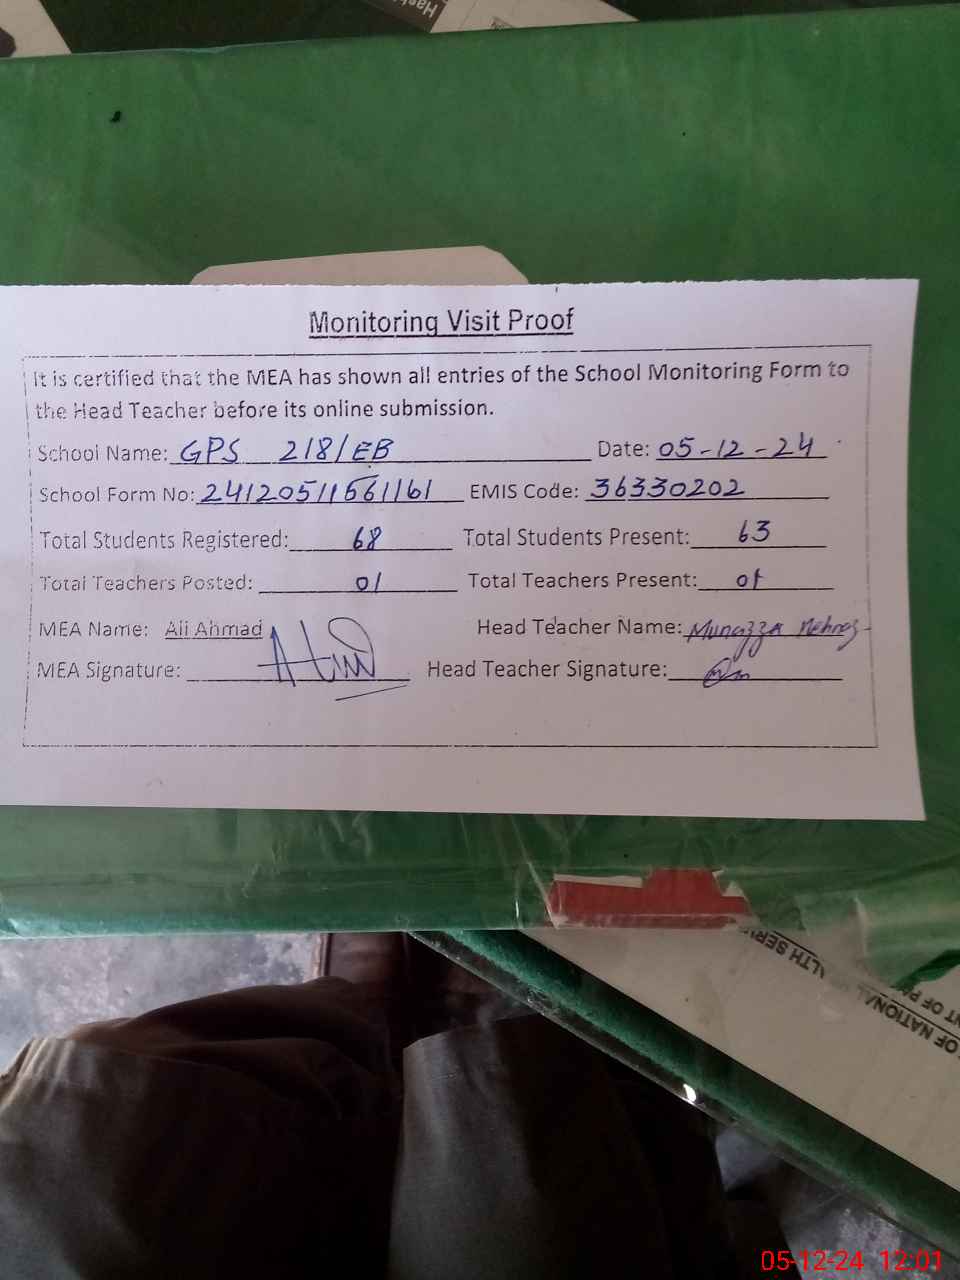 Monitoring Visit Proof
It is certified that the MEA has shown all entries of the School Monitoring Form to
the Head Teacher before its online submission.
School Name: GPS 218/EB Date: 05-12-24
School Form No: 24120511561161 EMIS Code: 36330202
Total Students Registered: 68 Total Students Present: 63
Total Teachers Posted: 01 Total Teachers Present: 01
MEA Name: Ali Ahmad Head Teacher Name: Munazza Mehnaz
MEA Signature: Head Teacher Signature:
ALTH SERV
OF NATIONAL
NT OF PA
05-12-24 12:01